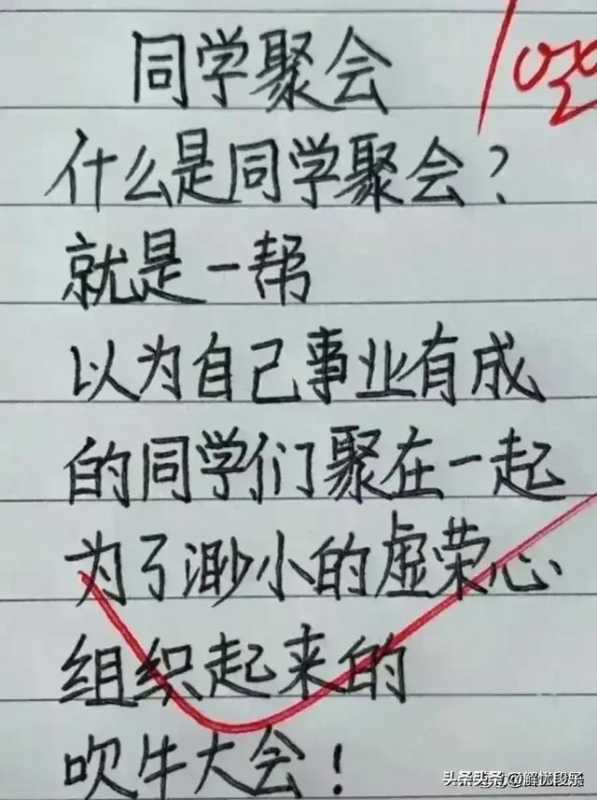 同学聚会
什么是同学聚会?
就是一帮
以为自己事业有成
的同学们聚在一起
为了渺小的虚荣心
组织起来的
吹牛大会!
头条头条@解忧段乐